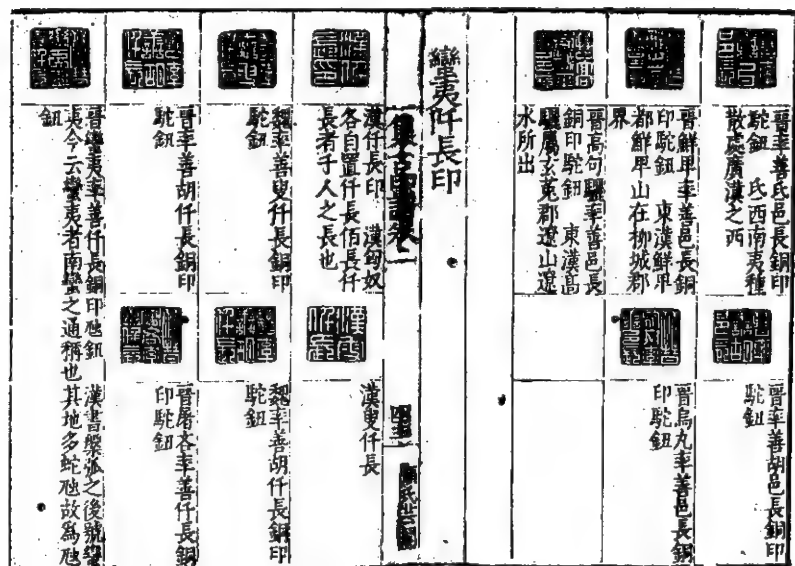 晉率善氐邑長銅印
駝鈕 氐西南夷種
散處廣漢之西
晉率善胡邑長銅印
駝鈕
晉鮮卑率善邑長銅
印駝鈕 東漢鮮卑
都鮮卑山在柳城郡
界
晉烏丸率善邑長銅
印駝鈕
晉高句驪率善邑長
銅印駝鈕 東漢高
驪屬玄菟郡遼山遼
水所出
蠻夷阡長印
集古印譜卷二
顧氏芸閣
漢仟長印 漢匈奴
各自置仟長佰長仟
長者千人之長也
漢叟仟長
魏率善叟仟長銅印
駝鈕
魏率善胡仟長銅印
駝鈕
晉率善胡仟長銅印
駝鈕
晉屠各率善仟長銅
印駝鈕
晉蠻夷率善仟長銅印虵鈕 漢書槃瓠之後號蠻
夷今云蠻夷者南蠻之通稱也其地多蛇虵故為虵
鈕